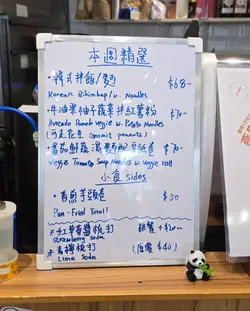 本週精選
·韓式拌飯/麵 $68-
Korean Bibimbap/w. Noodles
·牛油果柚子蔬菜拌紅薯粉 $70-
Avocado Pomelo veggie w. Potato Noodles
(可走花生 (omit peanuts)
·番茄鮮蔬湯麵配豆紙卷 $70-
Veggie Tomato Soup Noodles w. Veggie roll
小食 sides
·香煎芋頭卷 $50
Pan-Fried Taro!
*紅草莓鹽梳打 跟餐+$20
Strawberry soda
*青檸梳打 (單電 $40)
Lime Soda